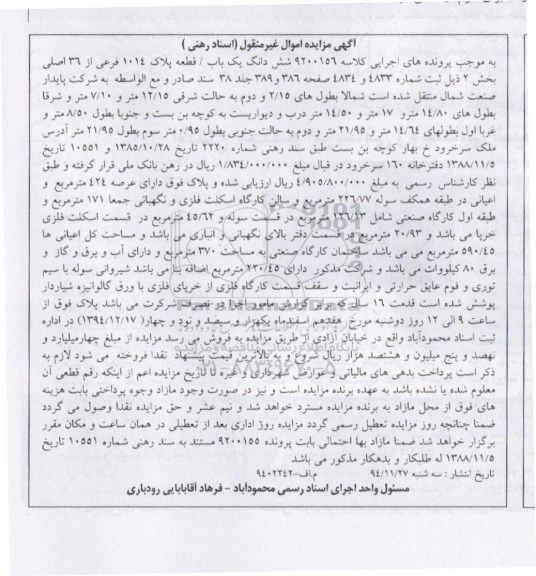 آگهی مزایده اموال غیرمنقول (اسناد رهنی )
به موجب پرونده های اجرایی کلاسه ۹۲۰۰۱۵۶ شش دانگ یک باب / قطعه پلاک ۱۰۱۴ فرعی از ۳۶ اصلی
بخش ۲ ذیل ثبت شماره ۴۸۳۳ و ۴۸۳۴ صفحه ۳۸۶ و ۳۸۹ جلد ۳۸ سند صادر و مع الواسطه به شرکت پایدار
صنعت شمال منتقل شده است شمالا بطول های ۲/۱۵ و دوم به حالت شرقی ۱۲/۱۵ متر و ۷/۱۰ متر و شرقا
بطول های ۱۴/۸۰ مترو ۱۷ متر و ۱۴/۵۰ متر درب و دیواریست به کوچه بن بست و جنوبا بطول ۸/۵۰ متر و
غربا اول بطولهای ۱۴/۶۴ متر و ۲۱/۹۵ متر و دوم به حالت جنوبی بطول ۰/۹۵ متر سوم بطول ۲۱/۹۵ متر آدرس
ملک سرخرود خ بهار کوچه بن بست طبق سند رهنی شماره ۲۲۲۰ تاریخ ۱۳۸۵/۱۰/۲۸ و ۱۰۵۵۱ تاریخ
۱۳۸۸/۱۱/۵ دفترخانه ۱۶۰ سرخرود در قبال مبلغ ۱/۸۳۴/۰۰۰/۰۰۰ ریال در رهن بانک ملی قرار گرفته و طبق
نظر کارشناس رسمی به مبلغ ۴/۹۰۵/۸۰۰/۰۰۰ ریال ارزیابی شده و پلاک فوق دارای عرصه ۴۲۴ مترمربع و
اعیانی در طبقه همکف سوله ۲۲۶/۷۷ مترمربع و سالن کارگاه اسکلت فلزی و نگهبانی جمعا ۱۷۱ مترمربع و
طبقه اول کارگاه صنعتی شامل ۱۲۶/۱۳ مترمربع در قسمت سوله و ۴۵/۶۲ مترمربع در قسمت اسکلت فلزی
خرپا می باشد و ۲۰/۹۳ مترمربع در قسمت دفتر بالای نگهبانی و انباری می باشد و مساحت کل اعیانی ها
۵۹۰/۴۵ مترمربع می می باشد ساختمان کارگاه صنعتی به مساحت ۳۷۰ مترمربع و دارای آب و برق و گاز و
برق ۸۰ کیلووات می باشد و شرکت مذکور دارای ۲۲۰/۴۵ مترمربع اضافه بنا می باشد شیروانی سوله با سیم
توری و فوم عایق حرارتی و ایرانیت و سقف قسمت کارگاه فلزی از خرپای فلزی با ورق گالوانیزه شیاردار
پوشش شده است قدمت ۱۶ سال که برابر گزارش مامور اجرا در تصرف شرکت می باشد پلاک فوق از
ساعت ۹ الی ۱۲ روز دوشنبه مورخ هفتدهم اسفندماه یکهزار و سیصد و نود و چهار( ۱۳۹۴/۱۲/۱۷) در اداره
ثبت اسناد محمودآباد واقع در خیابان آزادی از طریق مزایده به فروش می رسد مزایده از مبلغ چهارمیلیارد و
نهصد و پنج میلیون و هشتصد هزار ریال شروع و به بالاترین قیمت پیشنهاد نقدا فروخته می شود لازم به
ذکر است پرداخت بدهی های مالیاتی و عوارض شهرداری و غیره تا تاریخ مزایده اعم از اینکه رقم قطعی آن
معلوم شده یا نشده باشد به عهده برنده مزایده است و نیز در صورت وجود مازاد وجوه پرداختی بابت هزینه
های فوق از محل مازاد به برنده مزایده مسترد خواهد شد و نیم عشر و حق مزایده نقدا وصول می گردد
ضمنا چنانچه روز مزایده تعطیل رسمی گردد مزایده روژ اداری بعد از تعطیلی در همان ساعت و مکان مقرر
برگزار خواهد شد ضمنا مازاد بها احتمالی بابت پرونده ۹۲۰۰۱۵۵ مستند به سند رهنی شماره ۱۰۵۵۱ تاریخ
۱۳۸۸/۱۱/۵ له طلبکار و بدهکار مذکور می باشد
تاریخ انتشار : سه شنبه ۹۴/۱۱/۲۷ م.الف-۹۴۰۲۲۴۲
مسئول واحد اجرای اسناد رسمی محمودآباد - فرهاد آقابابایی رودباری